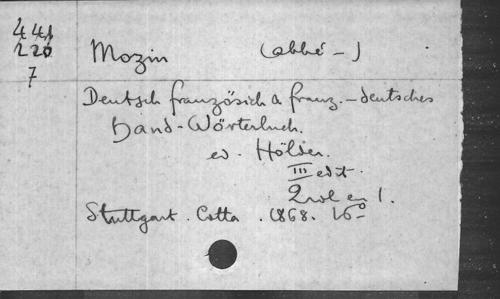 441
220
7
Mozin (abbé –)
Deutsch französisch & franz. – deutsches
Hand-Wörterbuch.
ed. Hölder.
III edit.
2 vol en 1.
Stuttgart. Cotta. 1868. 16°